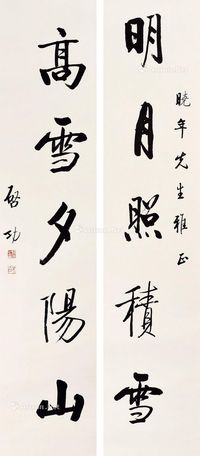 曉年先生雅正
明月照積雪
高雪夕陽山
啓功